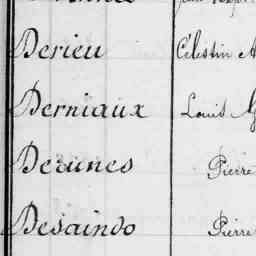 Derieu Célestin A
Derniaux Louis
Pierre
Desaindo Pierre